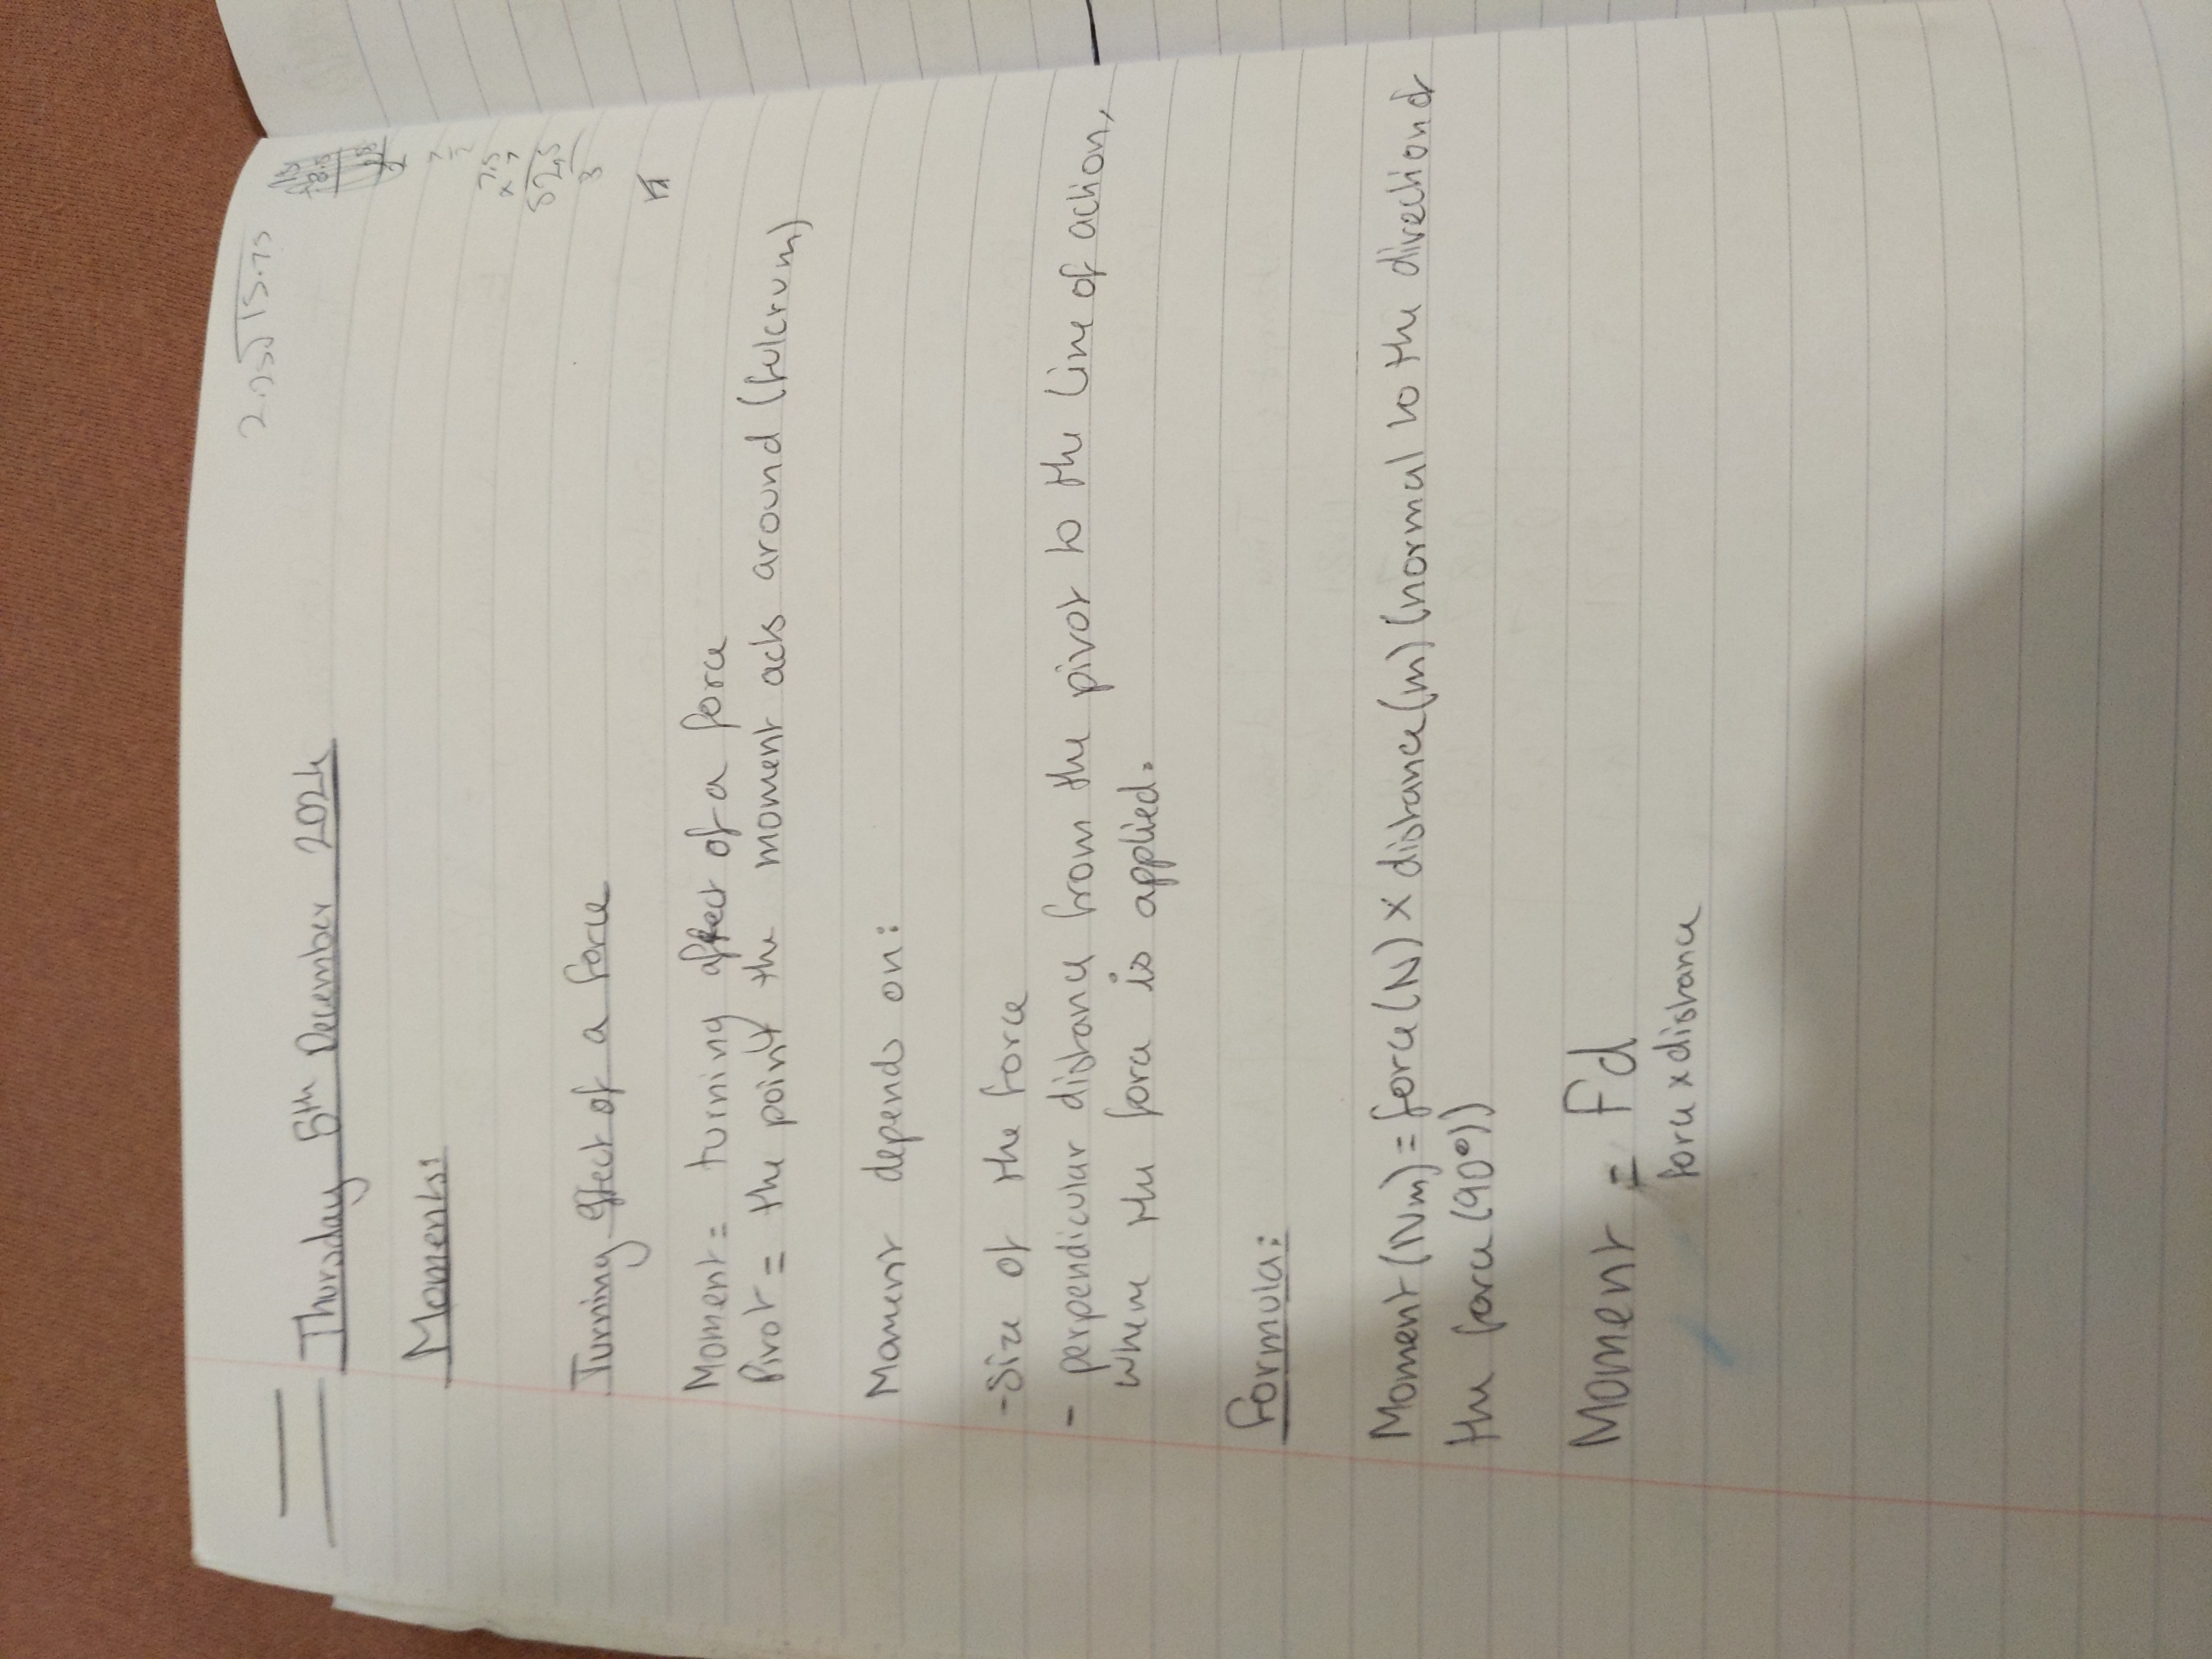 2.25√15.75
Thursday 5th December 2024
Moments:
Turning effect of a force
Moment = turning affect of a force
Pivot = the point the moment acts around (fulcrum)
Moment depends on:
-Size of the force
- perpendicular distance from the pivot to the line of action,
where the force is applied.
Formula:
Moment (Nm) = force (N) x distance (m) (normal to the direction of
the force (90°))
Moment = Fd
force x distance